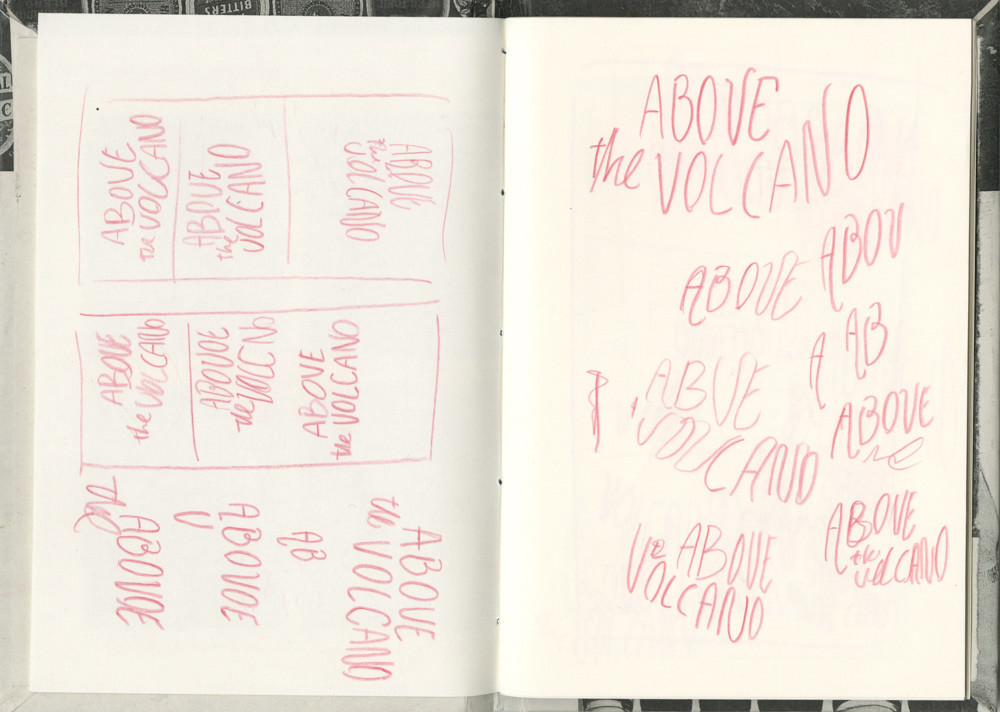 BITTERS
ABOVE
the VOLCANO
ABOVE
the
VOLCANO
ABOVE
the
VOLCANO
ABOVE
the VOLCANO
ABOVOE
the VOLCNO
ABOVE
the VOLCANO
the
ABOVE
V
ABOVE
AB
ABOVE
the VOLCANO
ABOVE
the VOLCANO
ABOVE
ABOV
AB
A
ABOVE
VOLCANO
ABOVE
ABOVE
VOLCANO
ABOVE
the
VOLCANO